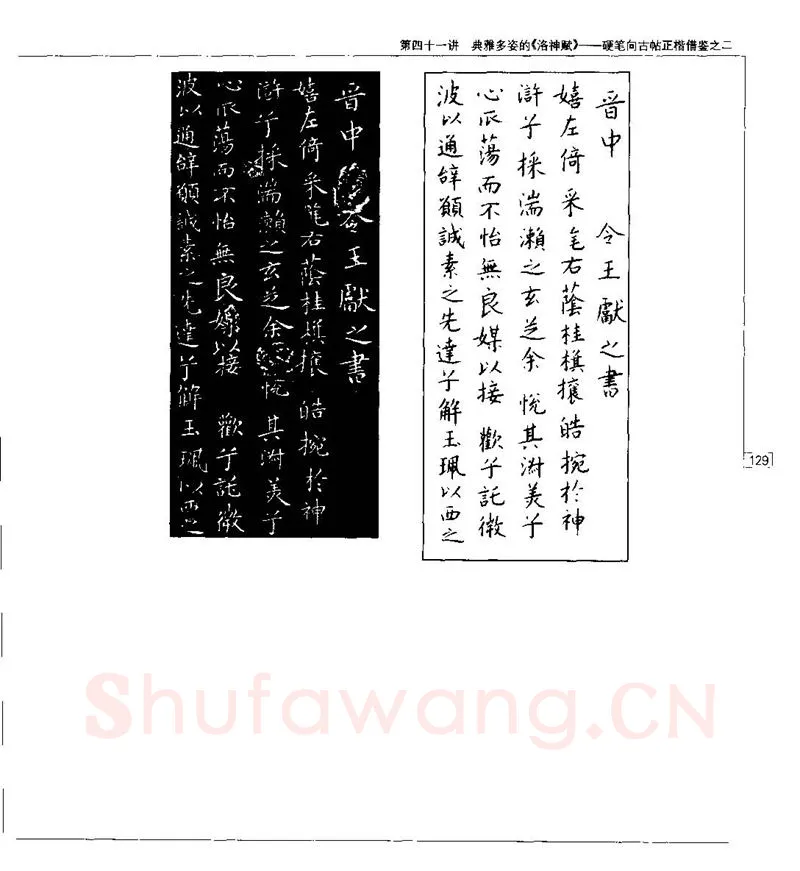 第四十一讲 典雅多姿的《洛神赋》——硬笔向古帖正楷借鉴之二
晉中 令王獻之書
嬉左倚采旄右蔭桂旗攘皓捥於神
滸兮採湍瀨之玄芝余悅其淑美兮
心蕩而不怡無良媒以接歡兮託微
波以通辭願誠素之先達兮解玉珮以西之
晉中 令王獻之書
嬉左倚采旄右蔭桂旗攘皓捥於神
滸兮採湍瀨之玄芝余 悅其淑美兮
心蕩而不怡無良媒以接歡兮託微
波以通辭願誠素之先達兮解玉珮以西之
129
Shufawang.CN